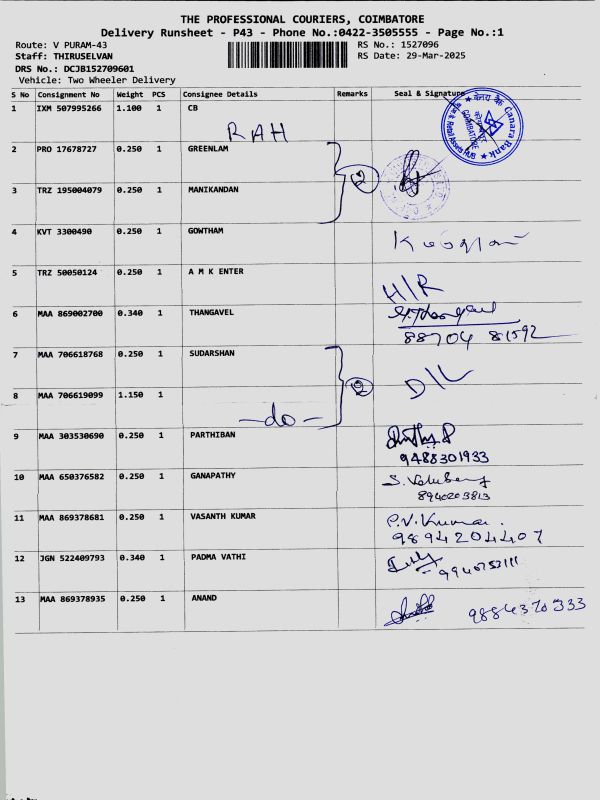 THE PROFESSIONAL COURIERS, COIMBATORE
Delivery Runsheet - P43 - Phone No.:0422-3505555 - Page No.:1
Route: V PURAM-43 RS No.: 1527096
Staff: THIRUSELVAN RS Date: 29-Mar-2025
DRS No.: DCJB152709601
Vehicle: Two Wheeler Delivery
S No Consignment No Weight PCS Consignee Details Remarks Seal & Signature
1 IXM 507995266 1.100 1 CB
RAH
केनरा बैंक Canara Bank
COIMBATORE
2 PRO 17678727 0.250 1 GREENLAM
2
3 TRZ 195004079 0.250 1 MANIKANDAN
4 KVT 3300490 0.250 1 GOWTHAM
5 TRZ 50050124 0.250 1 A M K ENTER
H/R
6 MAA 869002700 0.340 1 THANGAVEL
88704 81592
7 MAA 706618768 0.250 1 SUDARSHAN
2 D/L
8 MAA 706619099 1.150 1
-do-
9 MAA 303530690 0.250 1 PARTHIBAN
9488301933
10 MAA 650376582 0.250 1 GANAPATHY
8940203813
11 MAA 869378681 0.250 1 VASANTH KUMAR P.V. Kumar.
9894204407
12 JGN 522409793 0.340 1 PADMA VATHI
13 MAA 869378935 0.250 1 ANAND
9884370333